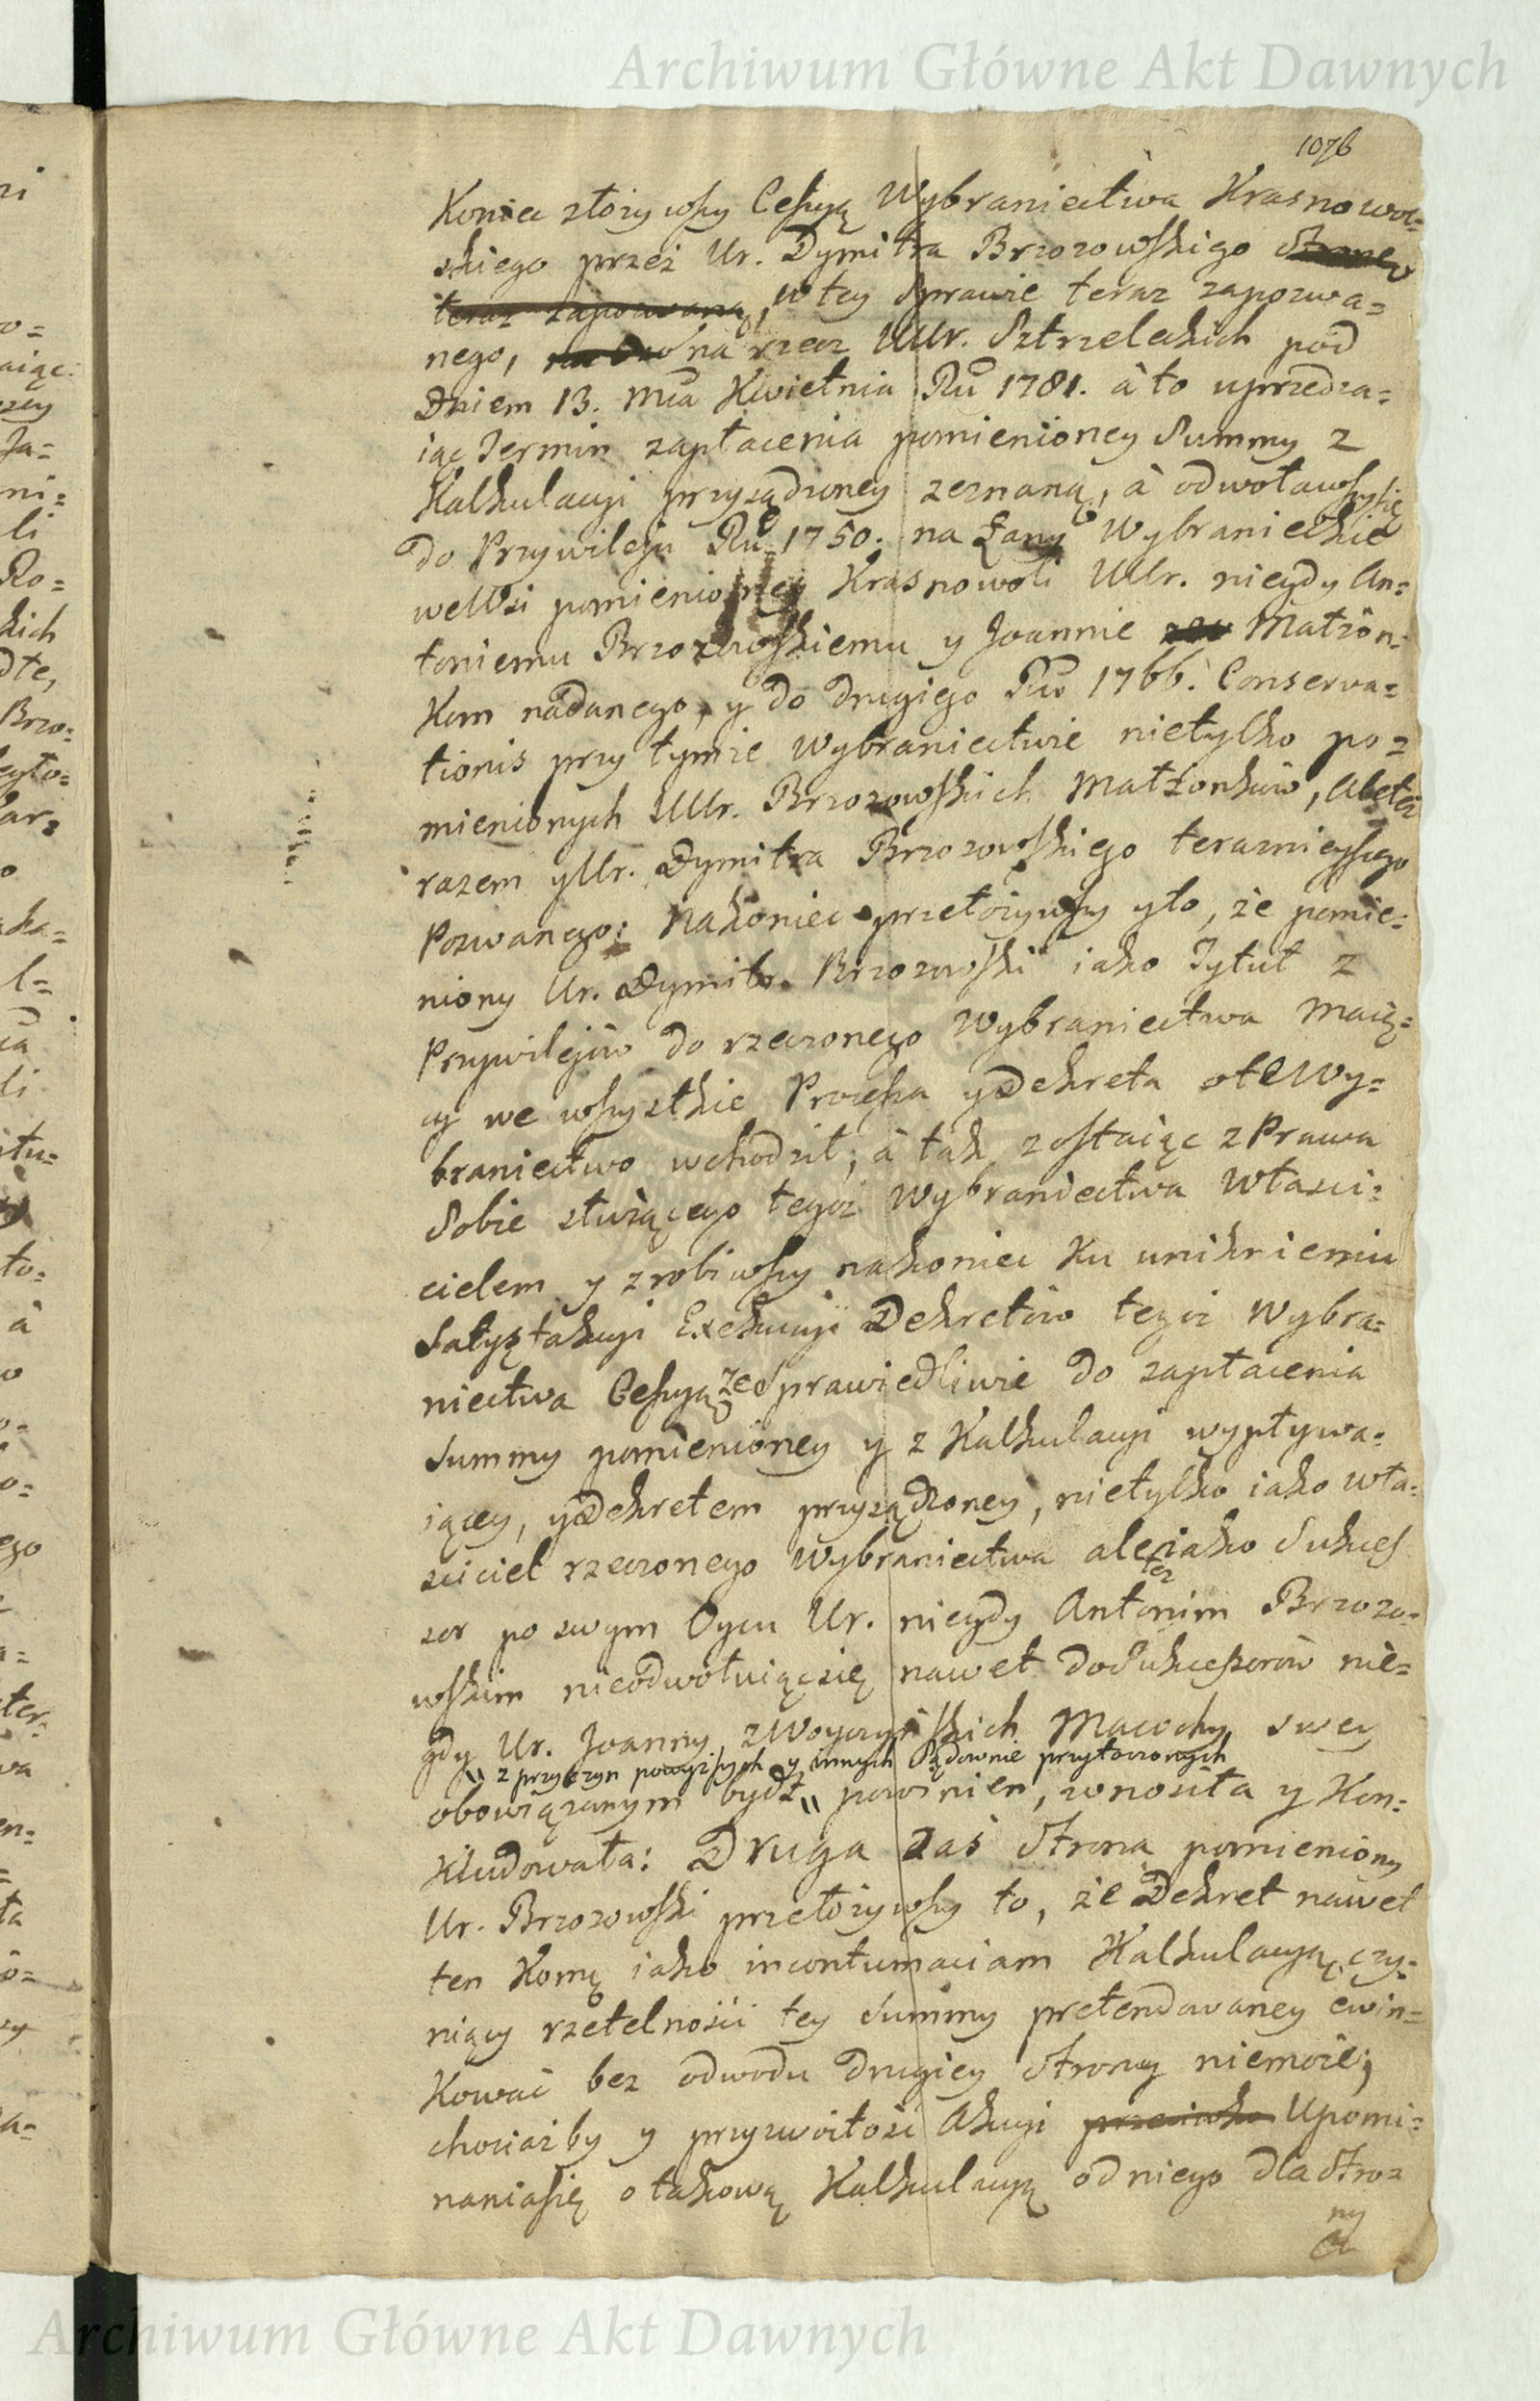 Archiwum Główne Akt Dawnych
1076
Koniec złożywszy Cessyą Wybraniectwa Krasnowol-
skiego przez Ur. Dymitra Brzozowskiego
w tey Sprawie teraz zapozwa=
nego, na rzecz UUr. Strzeleckich pod
Dniem 13. Mca Kwietnia Ru 1781. à to uprzedza=
iąc Termin zapłacenia pomienioney Summy z
Kalkulacyi przysądzoney zeznaną, à odwoławszysię
do Przywileju Ru 1750. na Łany Wybranieckie
weWsi pomienioney Krasnowoli UUr. niegdy An=
toniemu Brzozowskiemu y Joannie Małżon=
Kom nadanego, y do drugiego Ru 1766. Conserva=
tionis przy tymże Wybraniectwie nietylko po=
mienionych UUr. Brzozowskich Małżonków, Ale też
razem y Ur. Dymitra Brzozowskiego teraznieyszego
Pozwanego; Nakoniec przełożywszy yto, że pomie=
niony Ur. Dymitr Brzozowski iako Tytuł z
Przywilejów do rzeczonego Wybraniectwa Maią=
cy we wszystkie Processa y Dekreta oteWy=
braniectwo wchodził, à tak zostaiąc z Prawa
Sobie służącego tegoż Wybraniectwa Własci=
cielem y zrobiwszy nakoniec Ku uniknieniu
Satysfakcyi Exekucyi Dekretów tegoż Wybra=
niectwa Cessyą ze Sprawiedliwie do zapłacenia
Summy pomienioney y z Kalkulacyi wypływa=
iącey, yDekretem przysądzoney, nietylko iako wła=
sciciel rzeczonego Wybraniectwa ale też iako Sukces
sor po swym Oycu Ur. niegdy Antonim Brzozo=
wskim nieodwołuiącsię nawet doSukcessorów nie=
gdy Ur. Joanny z Woyczyńskich Macochy swey
" z przyczyn powyższych y innych Sądownie przytoczonych
obowiązanym bydź " powinien, wnosiła y Kon=
kludowała: Druga zaś Strona pomieniony
Ur. Brzozowski przełożywszy to, że Dekret nawet
ten Komę iako incontumaciam Kalkulacyą czy=
niący rzetelności tey Summy pretendowaney ewin=
Kować bez odwodu drugiey Strony niemoże;
chociażby y przyzwoitość Akcyi Upomi=
naniasię o takową Kalkulacyą od niego dla Stro=
ny
Archiwum Główne Akt Dawnych